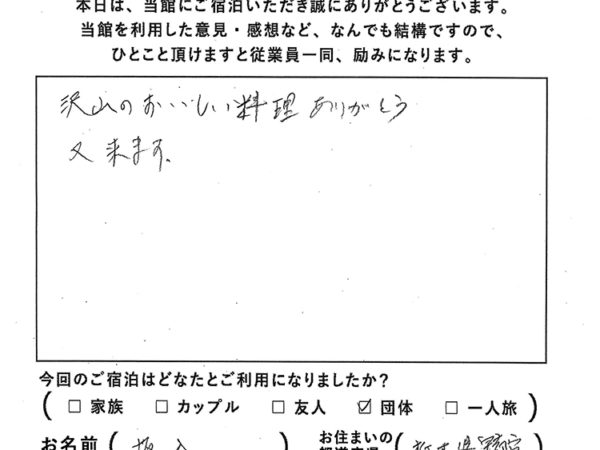 本日は、当館にご宿泊いただき誠にありがとうございます。
当館を利用した意見・感想など、なんでも結構ですので、
ひとこと頂けますと従業員一同、励みになります。
沢山のおいしい料理ありがとう
又来ます。
今回のご宿泊はどなたとご利用になりましたか?
( □ 家族 □ カップル □ 友人 ☑ 団体 □ 一人旅 )
お名前 ( ) お住まいの (